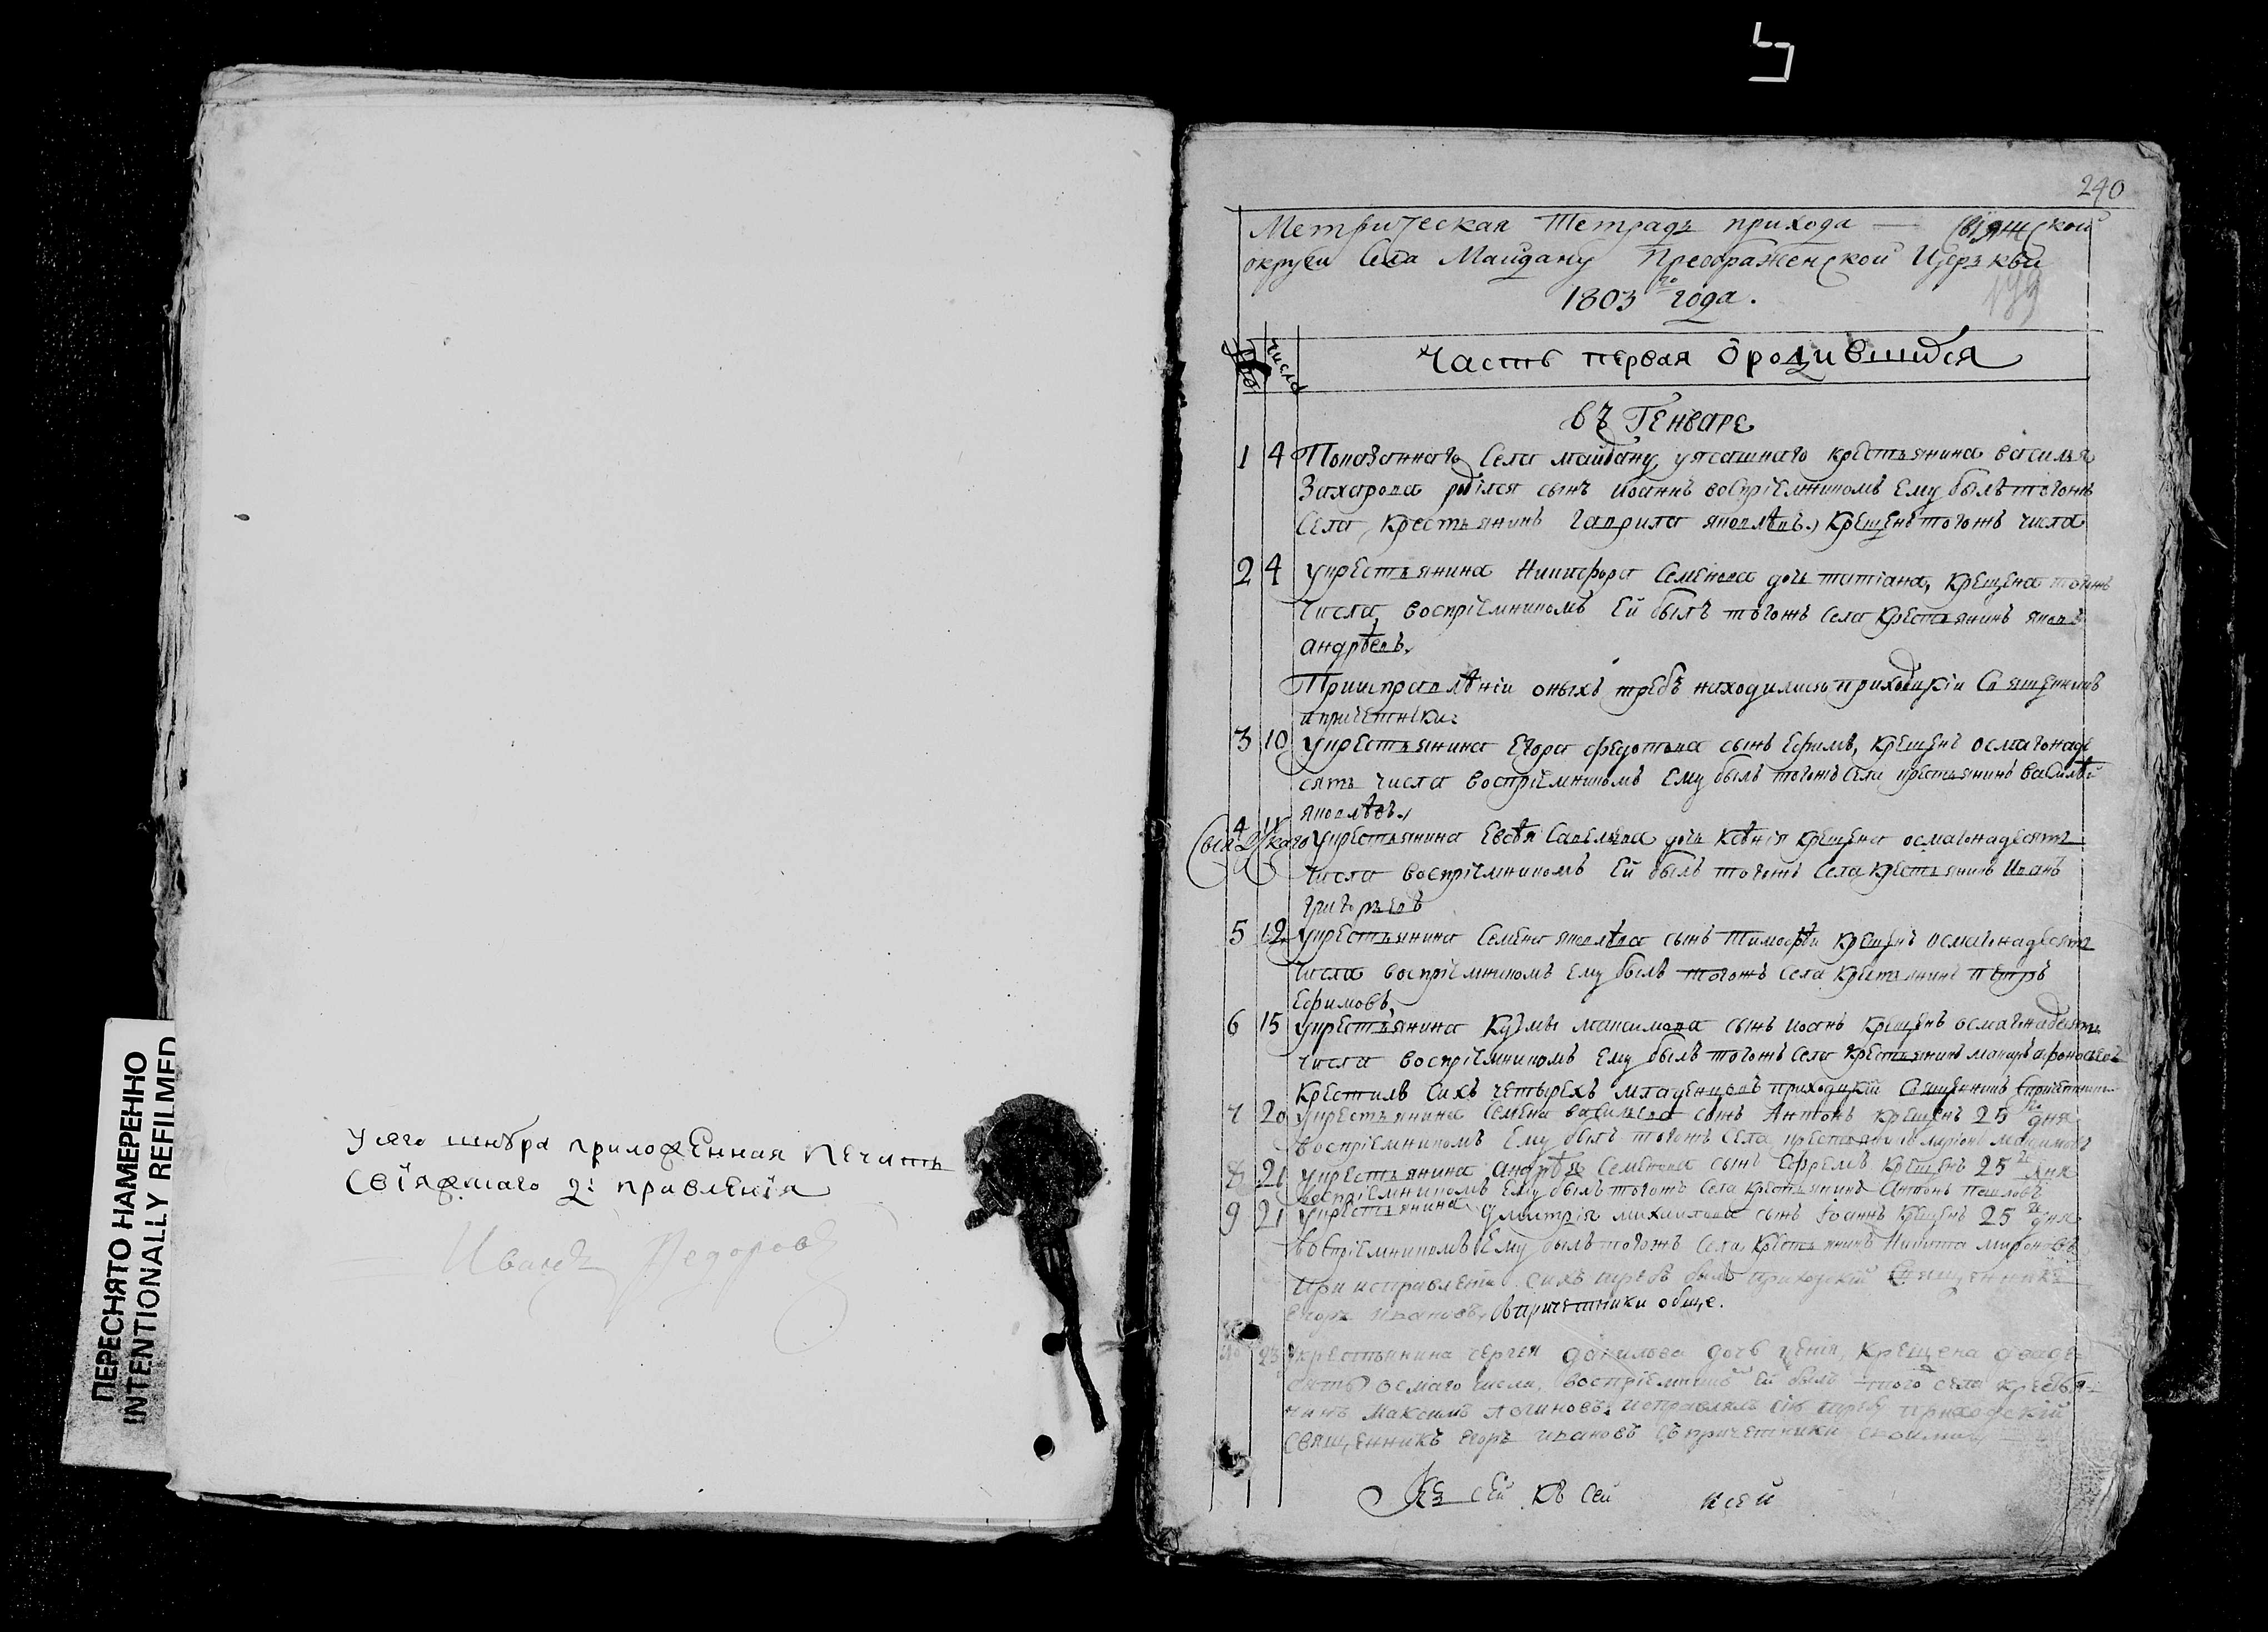 ПЕРЕСНЯТО НАМЕРЕННО
INTENTIONALLY REFILMED
У сего шнура приложенная печать
Свіяжшаго правленія
Иванъ Федоровъ
240
Метрическая Тетрадь прихода — Свіяжской
округи Села Майдану Преображенской Церькви
1803 го года.
число
Часть первая о родившихся
въ Генваре
1 4 Показаннаго Села майдану ясашнаго крестьянина василья
Захарова родился сынъ иоаннъ воспріемникомъ Ему былъ тогожъ
Села крестьянинъ гаврила яковлевъ, крещенъ тогожъ числа
2 4 у крестьянина Никифора Семенова дочь татіана, крещена тогожъ
числа, воспріемникомъ Ей былъ тогожъ села крестьянинъ яковъ
андрѣевъ.
При исправленіи оныхъ требъ находились приходскіи Священникъ
и причетники
3 10 у крестьянина Егора федотова сынъ Ефимъ, крещенъ осмагонаде
сять числа воспріемникомъ Ему былъ тогожъ села крестьянинъ василѣй
яковлѣвъ.
4 11 у крестьянина Евсѣя Савельева дочь ксѣнія крещена осмагонадесять
числа воспріемникомъ Ей былъ тогожъ Села крестьянинъ Иванъ
григорьевъ
5 12 у крестьянина Семена яковлѣва сынъ тимофѣй крещенъ осмагонадесять
числа воспріемникомъ Ему былъ тогожъ села крестьянинъ петръ
Ефимовъ,
6 15 у крестьянина Кузмы максимова сынъ иоанъ крещенъ осмагонадесять
числа воспріемникомъ Ему былъ тогожъ села крестьянинъ макаръ афонасевъ
крестилъ сихъ четырехъ младенцовъ приходскій Священникъ
7 20 у крестьянина Семена васильева сынъ Антонъ крещенъ 25 го дня
воспріемникомъ Ему былъ тогожъ села крестьянинъ иларіонъ максимовъ
8 21 у крестьянина андрѣя Семенова сынъ Ефремъ крещенъ 25 дня
воспріемникомъ Ему былъ тогожъ села крестьянинъ Антонъ павловъ
9 21 у крестьянина дмитрія михайлова сынъ Іоаннъ крещенъ 25 дня
воспріемникомъ Ему былъ тогожъ села крестьянинъ Никита мироновъ
При исправленіи сихъ требъ былъ приходскій священникъ
Егоръ ивановъ, с причетники обще.
10 23 у крестьянина сергея данилова дочь крещена дваде
сять осмаго числа, воспріемникъ ей былъ тогожъ села крестья
нинъ максимъ логиновъ, исправлялъ сію требу приходскій
священникъ егоръ ивановъ съ причетники своими
Къ сей Къ сей к сей